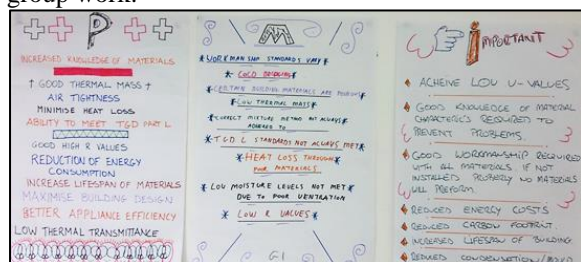 group work.
P
INCREASED KNOWLEDGE OF MATERIALS
↑ GOOD THERMAL MASS ↑
AIR TIGHTNESS
MINIMISE HEAT LOSS
ABILITY TO MEET TGD PART L
GOOD HIGH R VALUES
REDUCTION OF ENERGY
CONSUMPTION
INCREASE LIFESPAN OF MATERIALS
MAXIMISE BUILDING DESIGN
BETTER APPLIANCE EFFICIENCY
LOW THERMAL TRANSMITTANCE
M
* WORKMANSHIP STANDARDS VARY *
* COLD BRIDGING *
* CERTAIN BUILDING MATERIALS ARE POROUS *
* LOW THERMAL MASS *
* CORRECT MIXTURE METHO NOT ALWAYS
ADHERED TO
* TGD L STANDARDS NOT ALWAYS MET *
* HEAT LOSS THROUGH
POOR MATERIALS
* LOW MOISTURE LEVELS NOT MET
DUE TO POOR VENTRATION
* LOW R VALUES *
G1
IMPORTANT
ACHEIVE LOW U-VALUES
GOOD KNOWLEDGE OF MATERIAL
CHARACTERICS REQUIRED TO
PREVENT PROBLEMS.
GOOD WORKMANSHIP REQUIRED
WITH ALL MATERIALS. IF NOT
INSTALLED PROPERLY NO MATERIALS
WILL PREFORM.
REDUCED ENERGY COSTS
REDUCED CARBON FOOTPRINT.
INCREASED LIFESPAN OF BUILDING
REDUCED CONDENSATION/MOULD